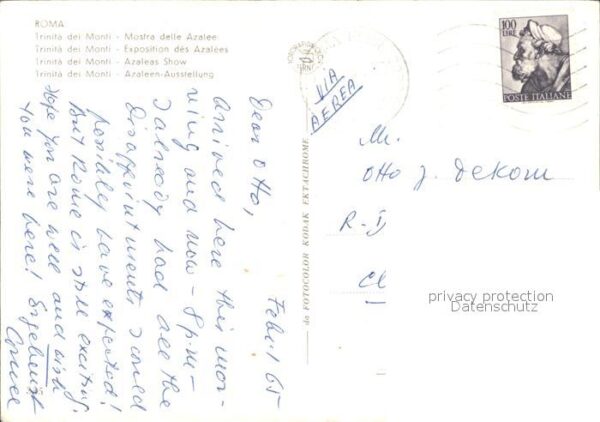 ROMA
Trinità dei Monti - Mostra delle Azalee
Trinità dei Monti - Exposition des Azalées
Trinità dei Monti - Azaleas Show
Trinità dei Monti - Azaleen-Ausstellung
100
LIRE
POSTE ITALIANE
VIA
AEREA
65
Dear Otto,
Arrived here this mor-
ning and now - 9 p.m -
I already had all the
Disappointments I could
possibly have expected!
But Rome is still exciting.
Hope you are well and wish
You were here!
da FOTOCOLOR KODAK EKTACHROME
Mr.
Otto J. Dekom
privacy protection
Datenschutz